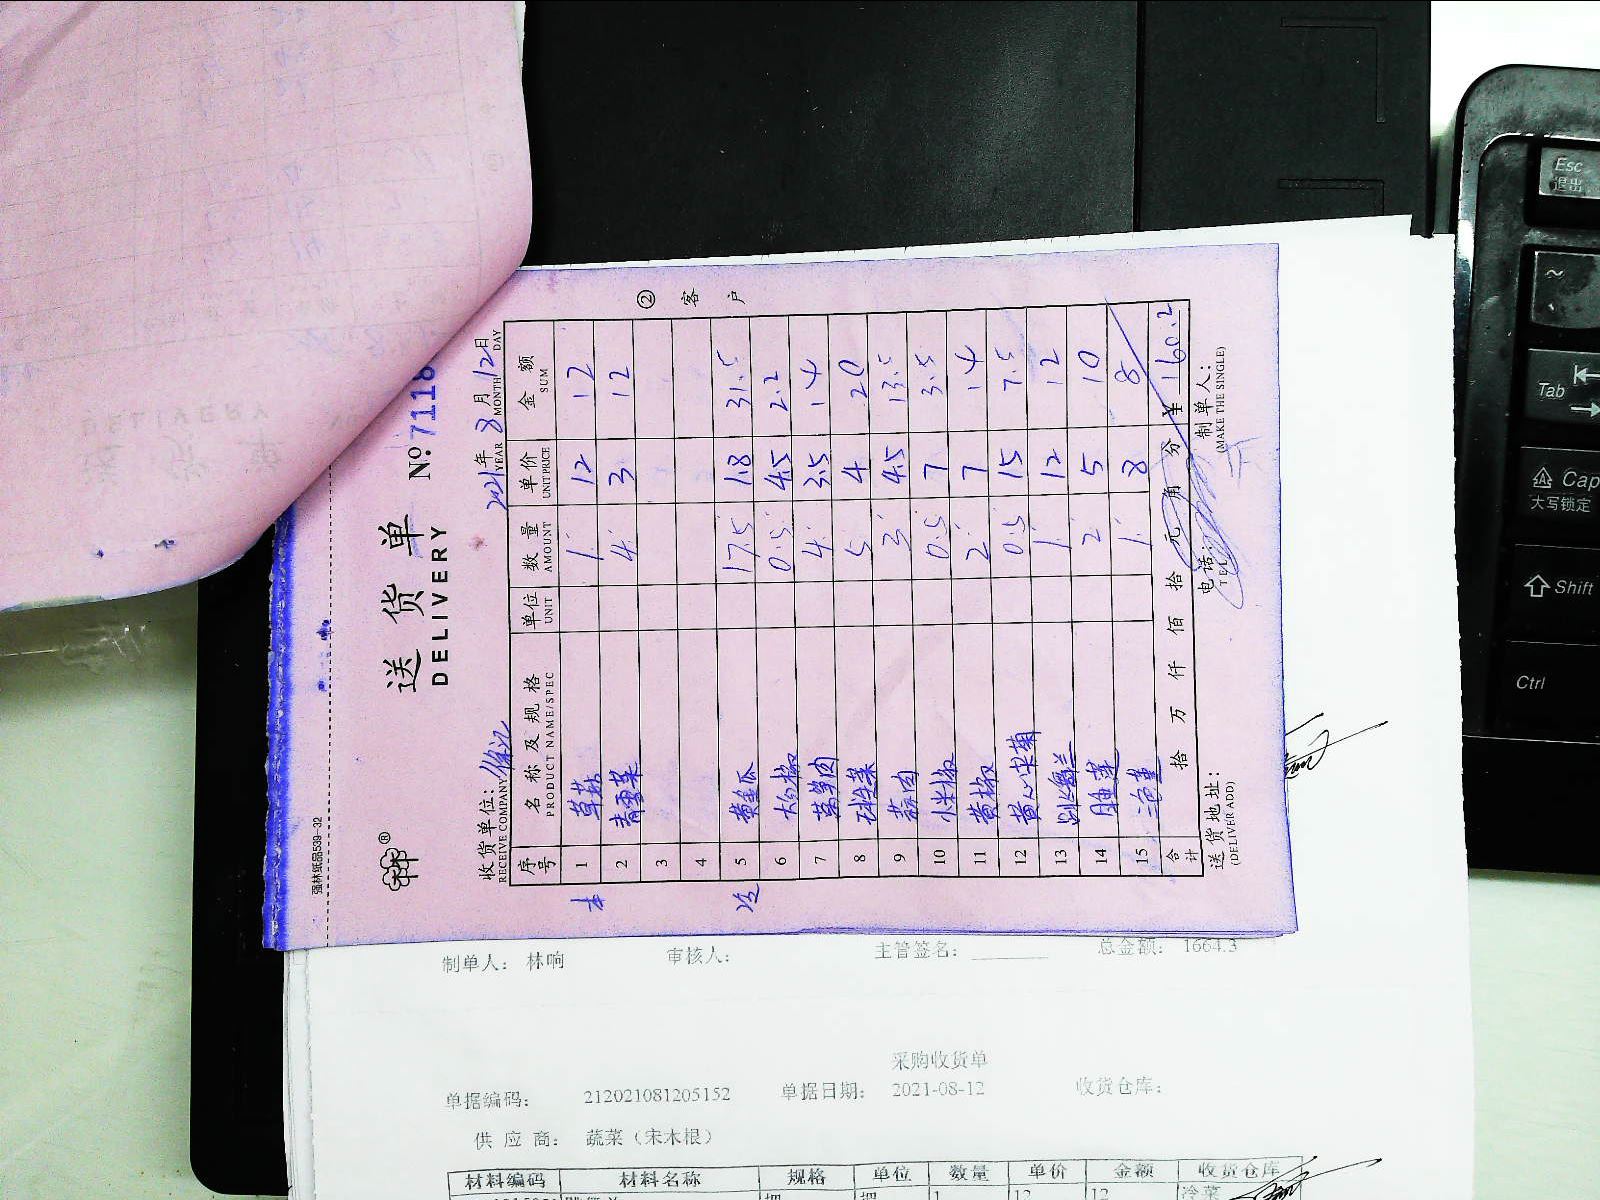 强林纸品539-32
送货单
DELIVERY
№ 7118
收货单位：徐记
RECEIVE COMPANY
2021年8月12日
YEAR MONTH DAY
序号 名称及规格 单位 数量 单价 金额
PRODUCT NAME/SPEC UNIT AMOUNT UNIT PRICE SUM
1 草菇 1 12 12
2 4 3 12
3
4
5 黄瓜 17.5 1.8 31.5
6 0.5 4.5 2.2
7 莴笋肉 4 3.5 14
8 球生菜 5 4 20
9 蒜肉 3 4.5 13.5
10 小米椒 0.5 7 3.5
11 黄椒 2 7 14
12 0.5 15 7.5
13 1 12 12
14 2 5 10
15 三色堇 1 8 8
合计 拾 万 仟 佰 拾 元 角 分 ¥ 160.2
送货地址：
(DELIVER ADD)
电话：
TEL
制单人：
(MAKE THE SINGLE)
② 客户
制单人： 林响 审核人： 主管签名： 总金额： 1664.3
采购收货单
单据编码： 212021081205152 单据日期： 2021-08-12 收货仓库：
供应商： 蔬菜（宋木根）
材料编码 材料名称 规格 单位 数量 单价 金额 收货仓库
把 把 1 12 12 冷菜
Esc
退出
~
Tab
Cap
大写锁定
Shift
Ctrl